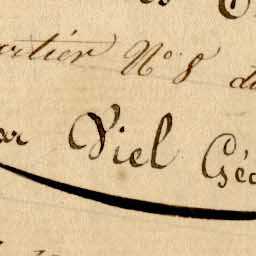 artier N° 8 du
par Viel Géo